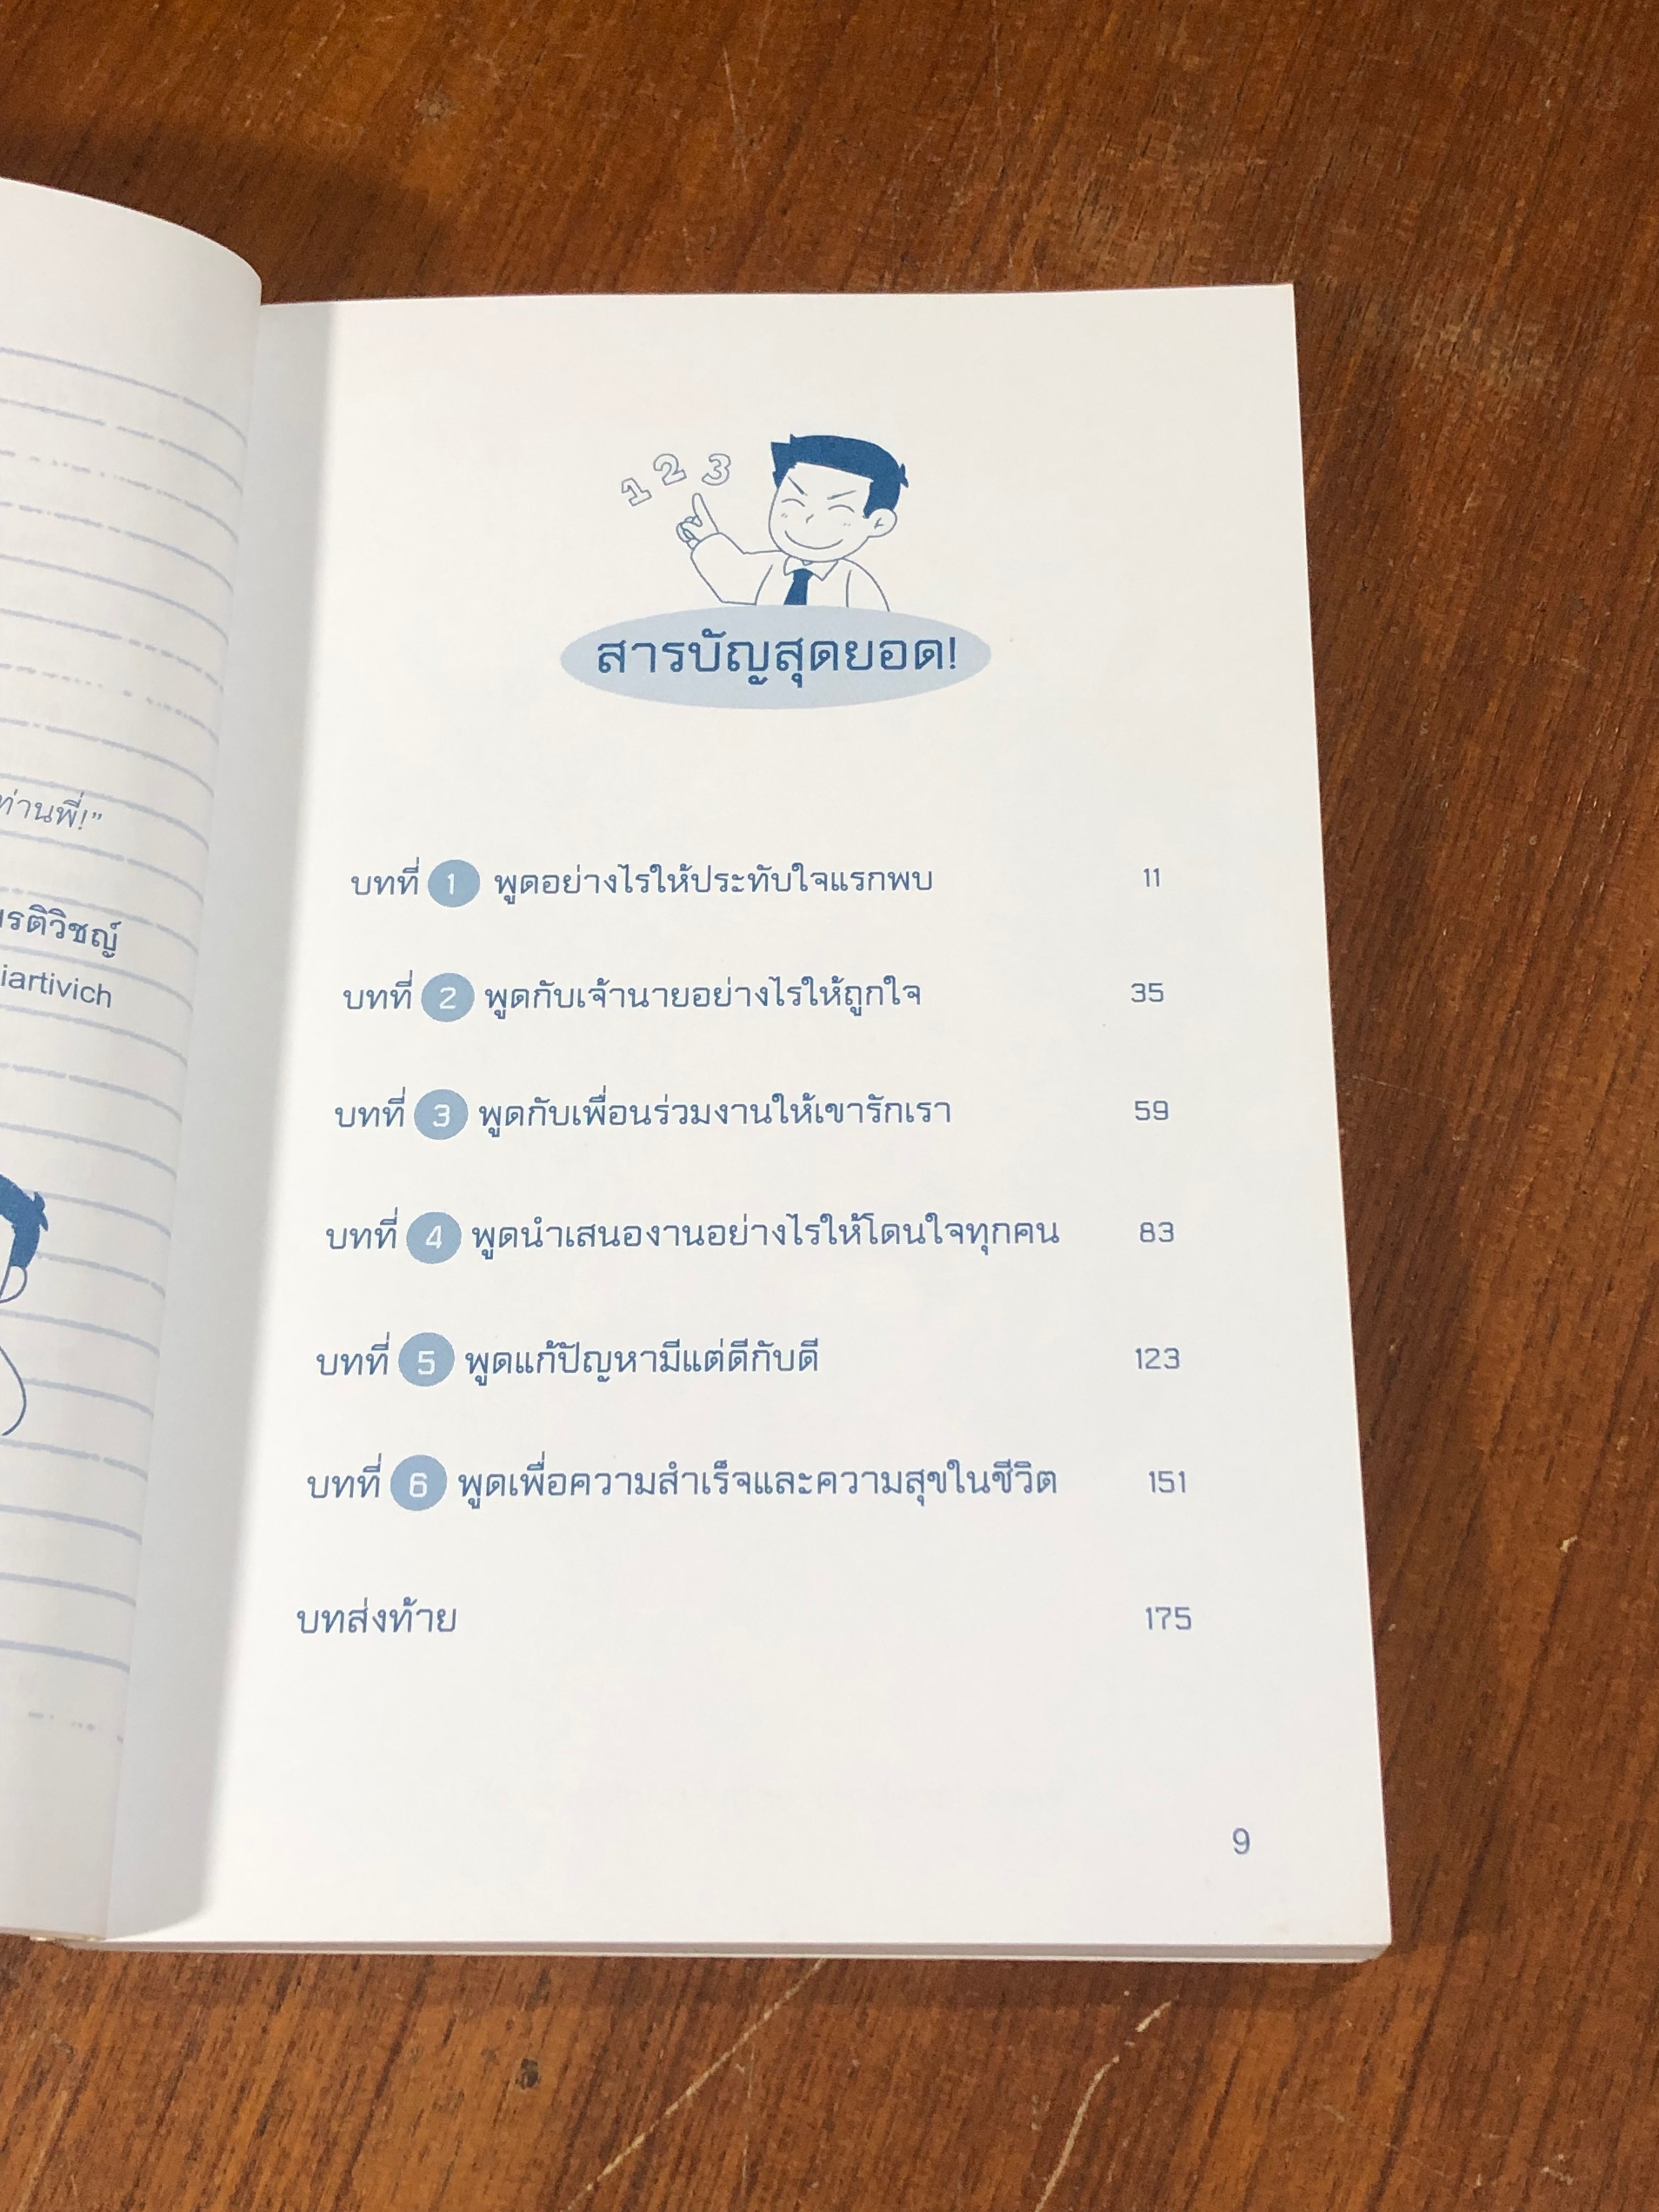 ท่านพี่!”
iartivich
1 2 3
สารบัญสุดยอด!
บทที่ 1 พูดอย่างไรให้ประทับใจแรกพบ 11
บทที่ 2 พูดกับเจ้านายอย่างไรให้ถูกใจ 35
บทที่ 3 พูดกับเพื่อนร่วมงานให้เขารักเรา 59
บทที่ 4 พูดนำเสนองานอย่างไรให้โดนใจทุกคน 83
บทที่ 5 พูดแก้ปัญหามีแต่ดีกับดี 123
บทที่ 6 พูดเพื่อความสำเร็จและความสุขในชีวิต 151
บทส่งท้าย 175
9